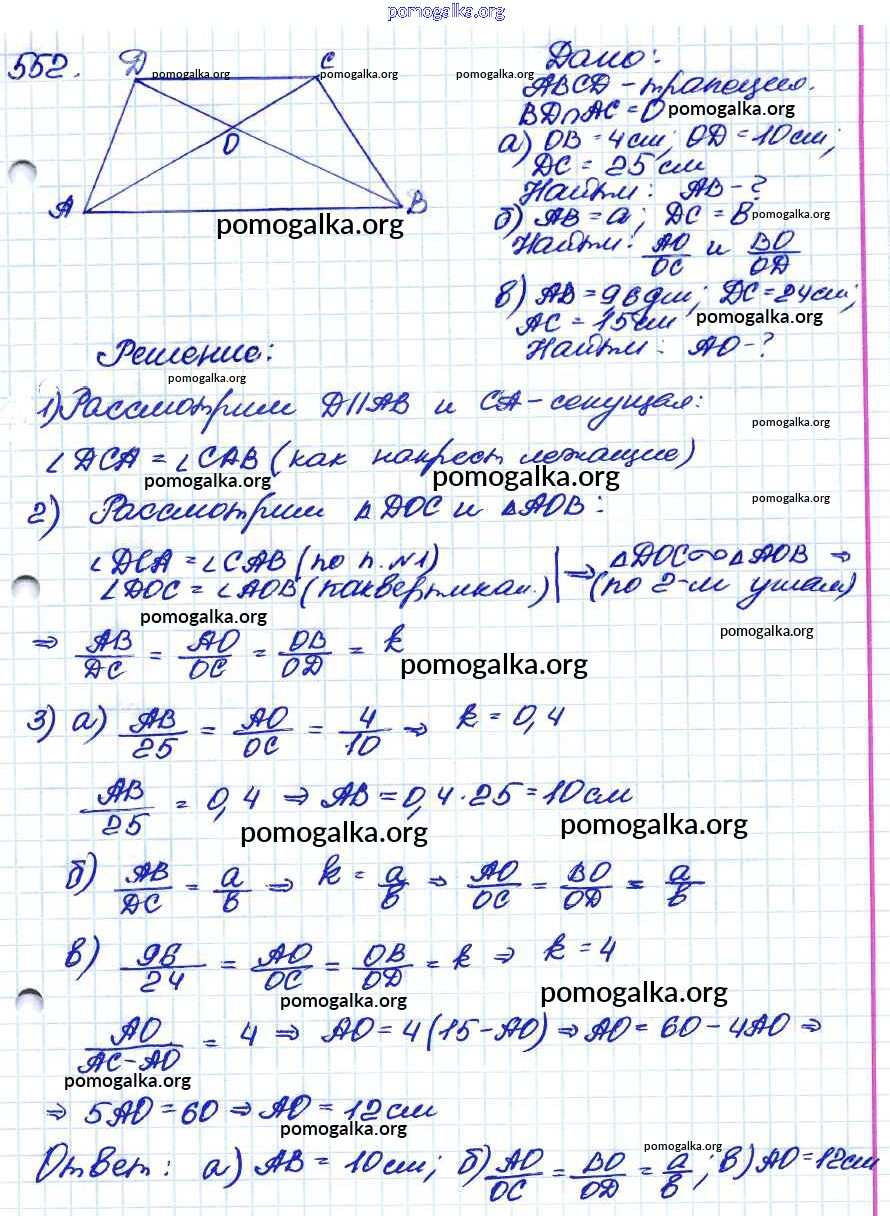 pomogalka.org
552.
D C
pomogalka.org pomogalka.org pomogalka.org
O
A B
pomogalka.org
Дано:
ABCD - трапеция.
BD∩AC = O pomogalka.org
а) OB = 4см; OD = 10см;
DC = 25 см
Найти: AB - ?
б) AB = a; DC = B pomogalka.org
Найти: AO/OC и BO/OD
в) AB = 96дм; DC = 24см;
AC = 15см pomogalka.org
Найти: AO - ?
Решение:
pomogalka.org
1) Рассмотрим D||AB и CA - секущая:
pomogalka.org
∠DCA = ∠CAB (как накрест лежащие)
pomogalka.org pomogalka.org
2) Рассмотрим △DOC и △AOB:
pomogalka.org
∠DCA = ∠CAB (по п. N1)
∠DOC = ∠AOB (как вертикал.) | ⇒ △DOC∾△AOB ⇒ (по 2-м углам)
pomogalka.org pomogalka.org
⇒ AB/DC = AO/OC = OB/OD = k
pomogalka.org
3) а) AB/25 = AO/OC = 4/10 ⇒ k = 0,4
AB/25 = 0,4 ⇒ AB = 0,4·25 = 10см
pomogalka.org pomogalka.org
б) AB/DC = a/b ⇒ k = a/b ⇒ AO/OC = BO/OD = a/b
в) 96/24 = AO/OC = OB/OD = k ⇒ k = 4
pomogalka.org pomogalka.org
AO/AC-AO = 4 ⇒ AO = 4(15-AO) ⇒ AO = 60 - 4AO ⇒
pomogalka.org
⇒ 5AO = 60 ⇒ AO = 12см
pomogalka.org
pomogalka.org
Ответ: а) AB = 10см; б) AO/OC = BO/OD = a/b; в) AO = 12см